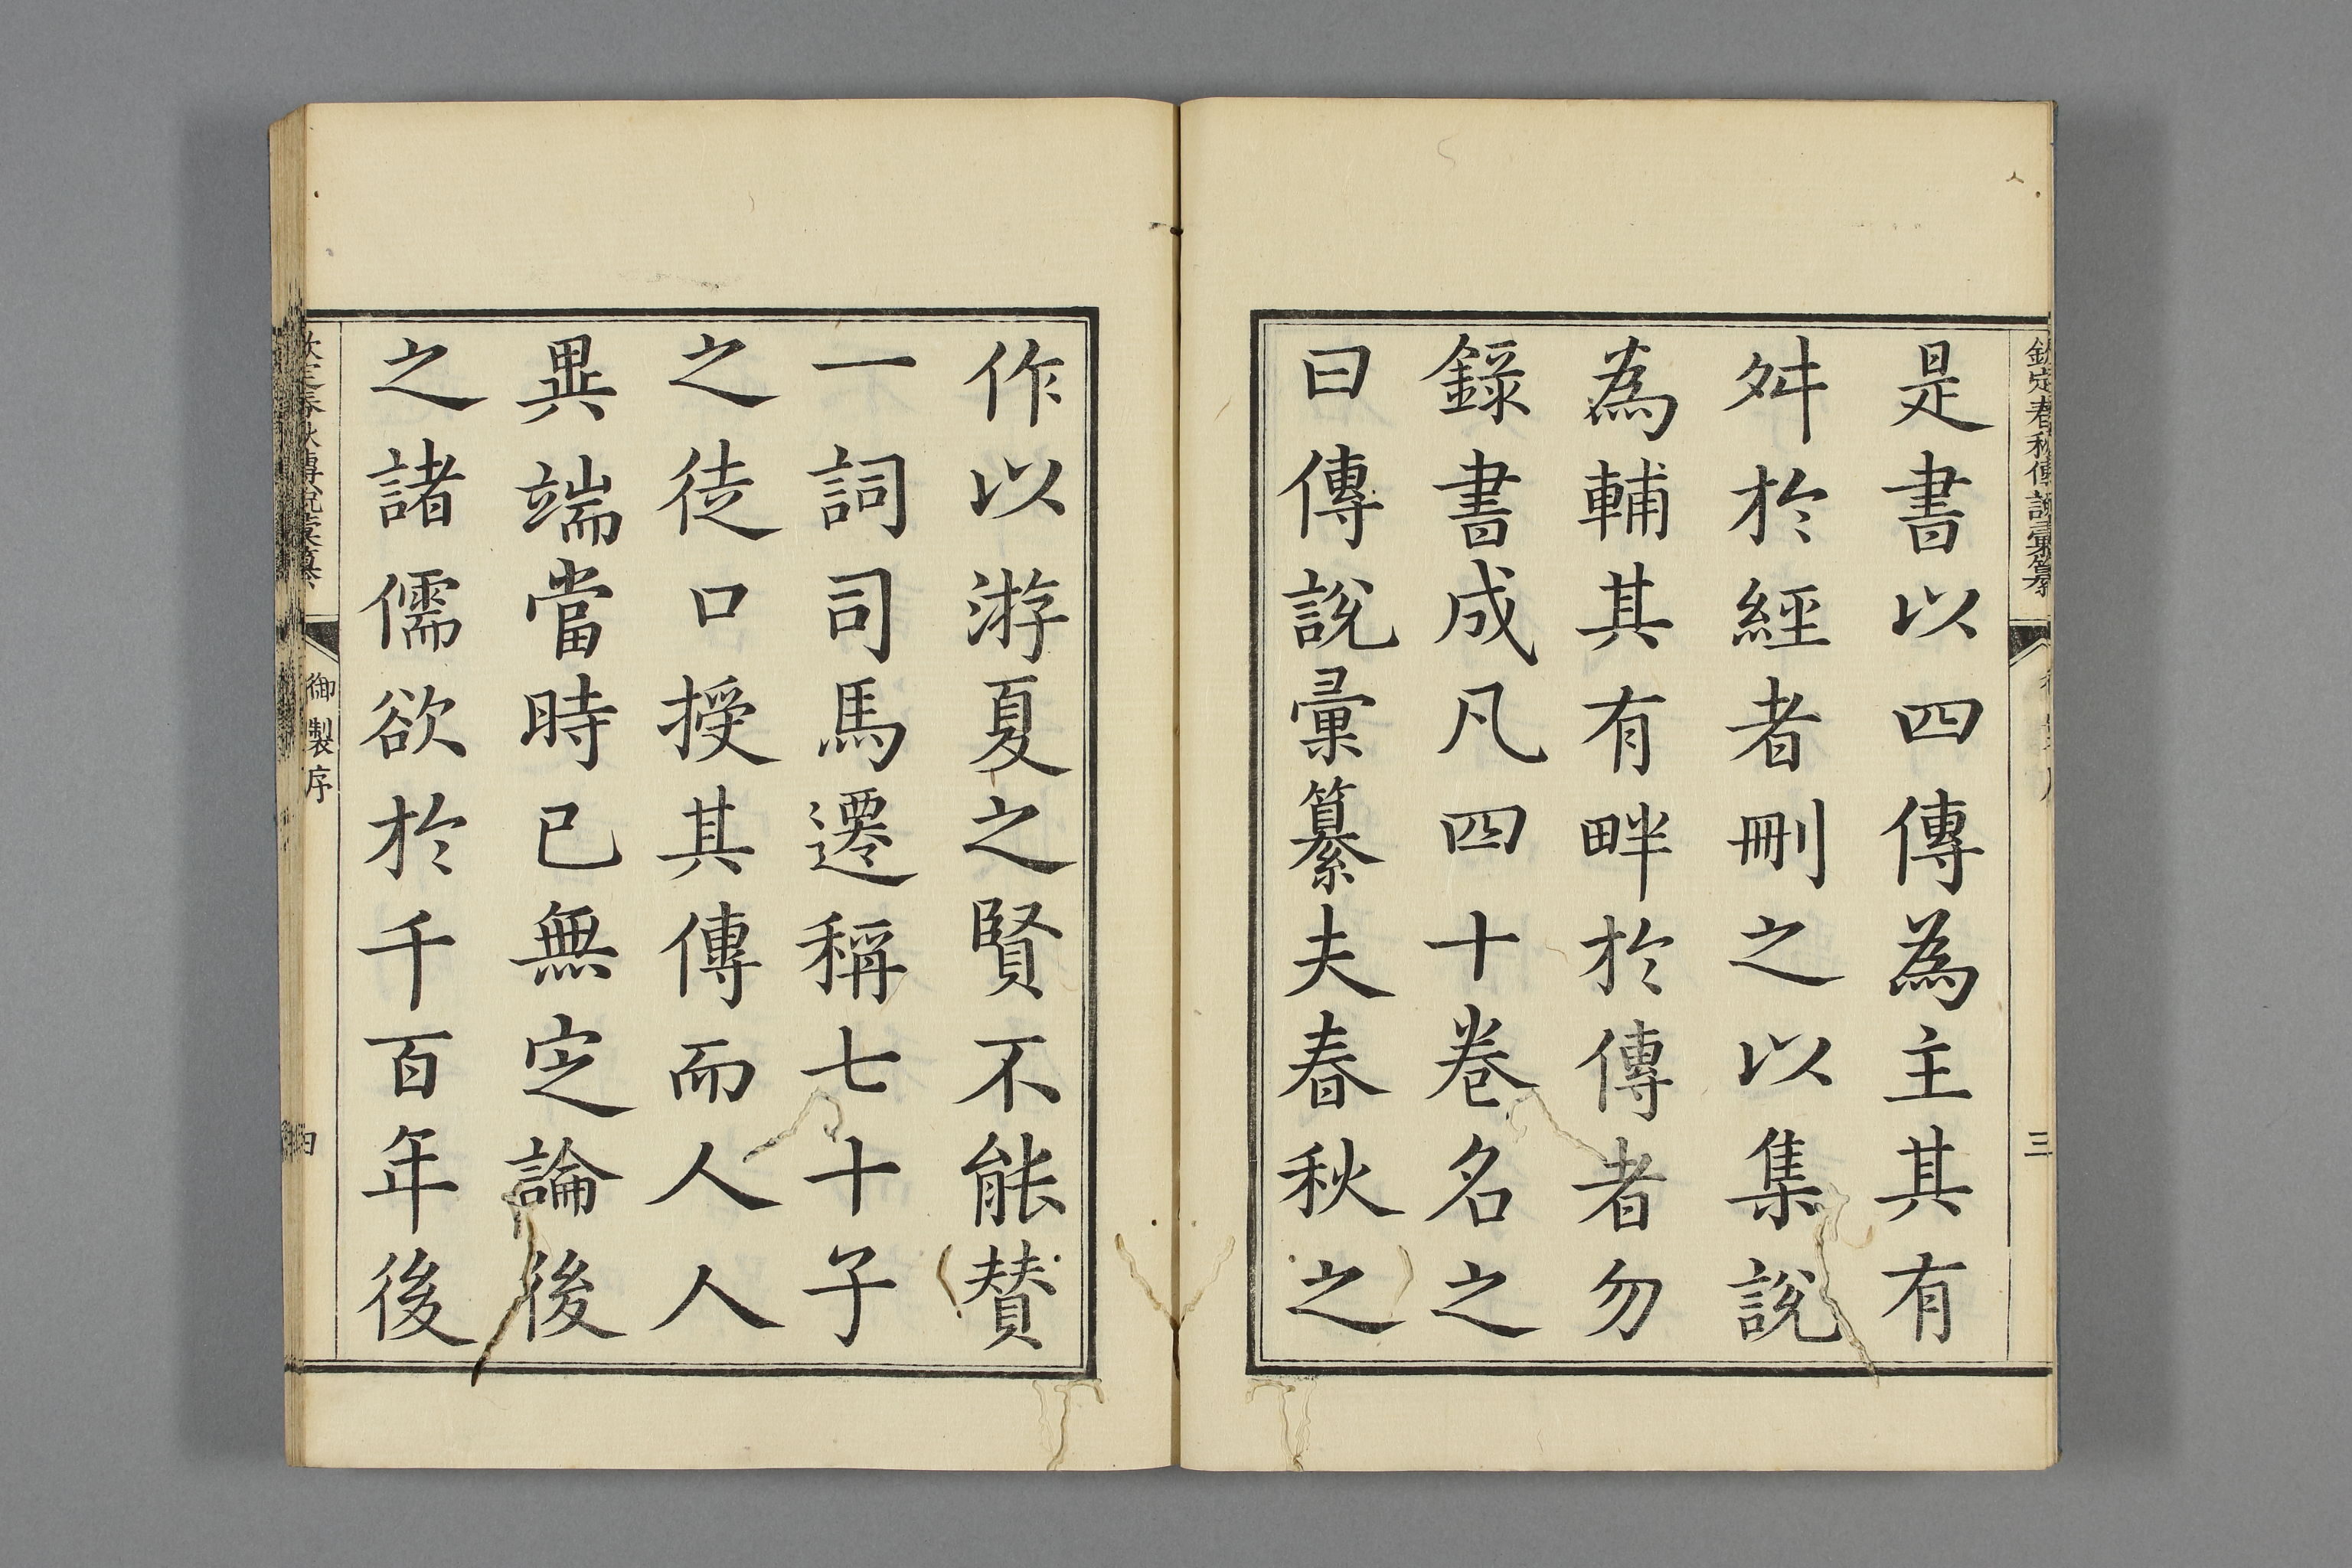 欽定春秋傳說彙纂
三
是書以四傳為主其有
舛於經者刪之以集說
為輔其有畔於傳者勿
錄書成凡四十卷名之
曰傳說彙纂夫春秋之
作以游夏之賢不能賛
一詞司馬遷稱七十子
之徒口授其傳而人人
異端當時已無定論後
之諸儒欲於千百年後
欽定春秋傳說彙纂
御製序
四